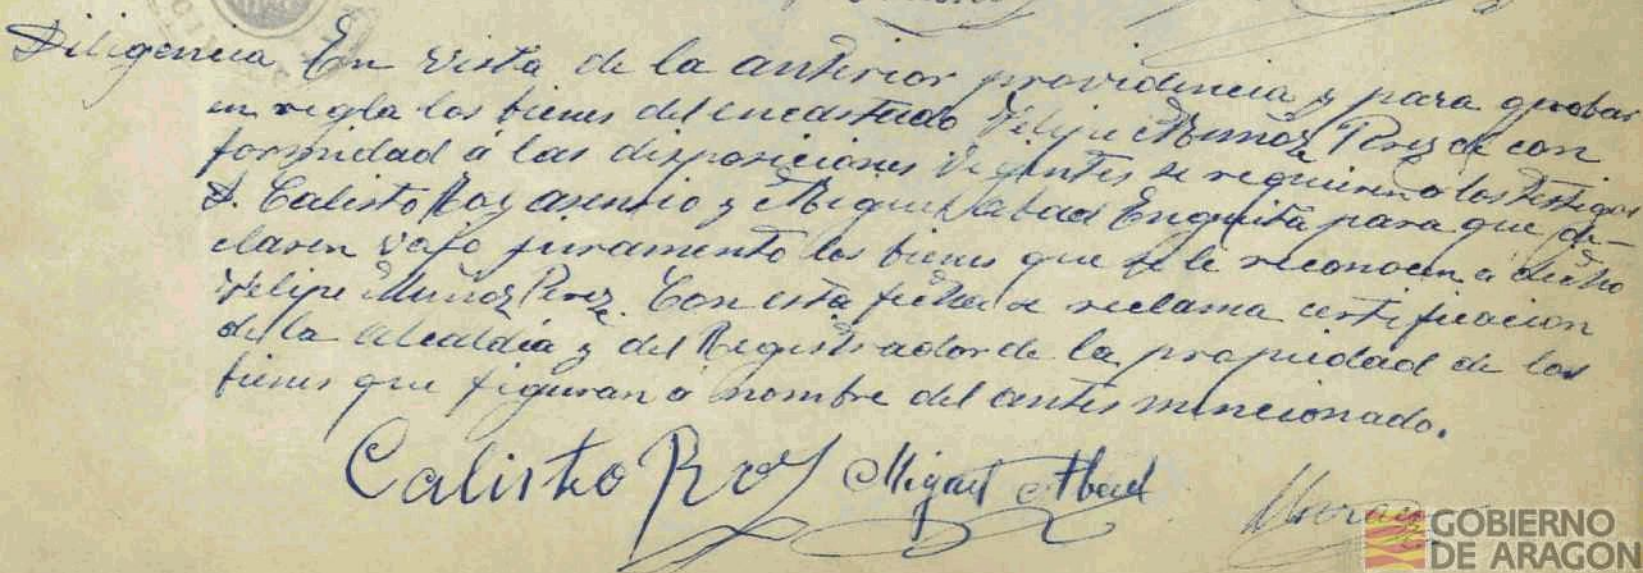 Diligencia En vista de la anterior providencia y para probar
en regla los bienes del encartado Felipe Muñoz Perez de con
formidad á las disposiciones vigentes se requieren a los testigos
D. Calisto Roy Asensio y Miguel Abad Enguita para que de-
claren vajo juramento los bienes que se le reconocen a dicho
Felipe Muñoz Perez. Con esta fecha se reclama certificacion
de la Alcaldia y del Registrador de la propiedad de los
bienes que figuran a nombre del antes mencionado.
Calisto Roy Miguel Abad
GOBIERNO
DE ARAGON